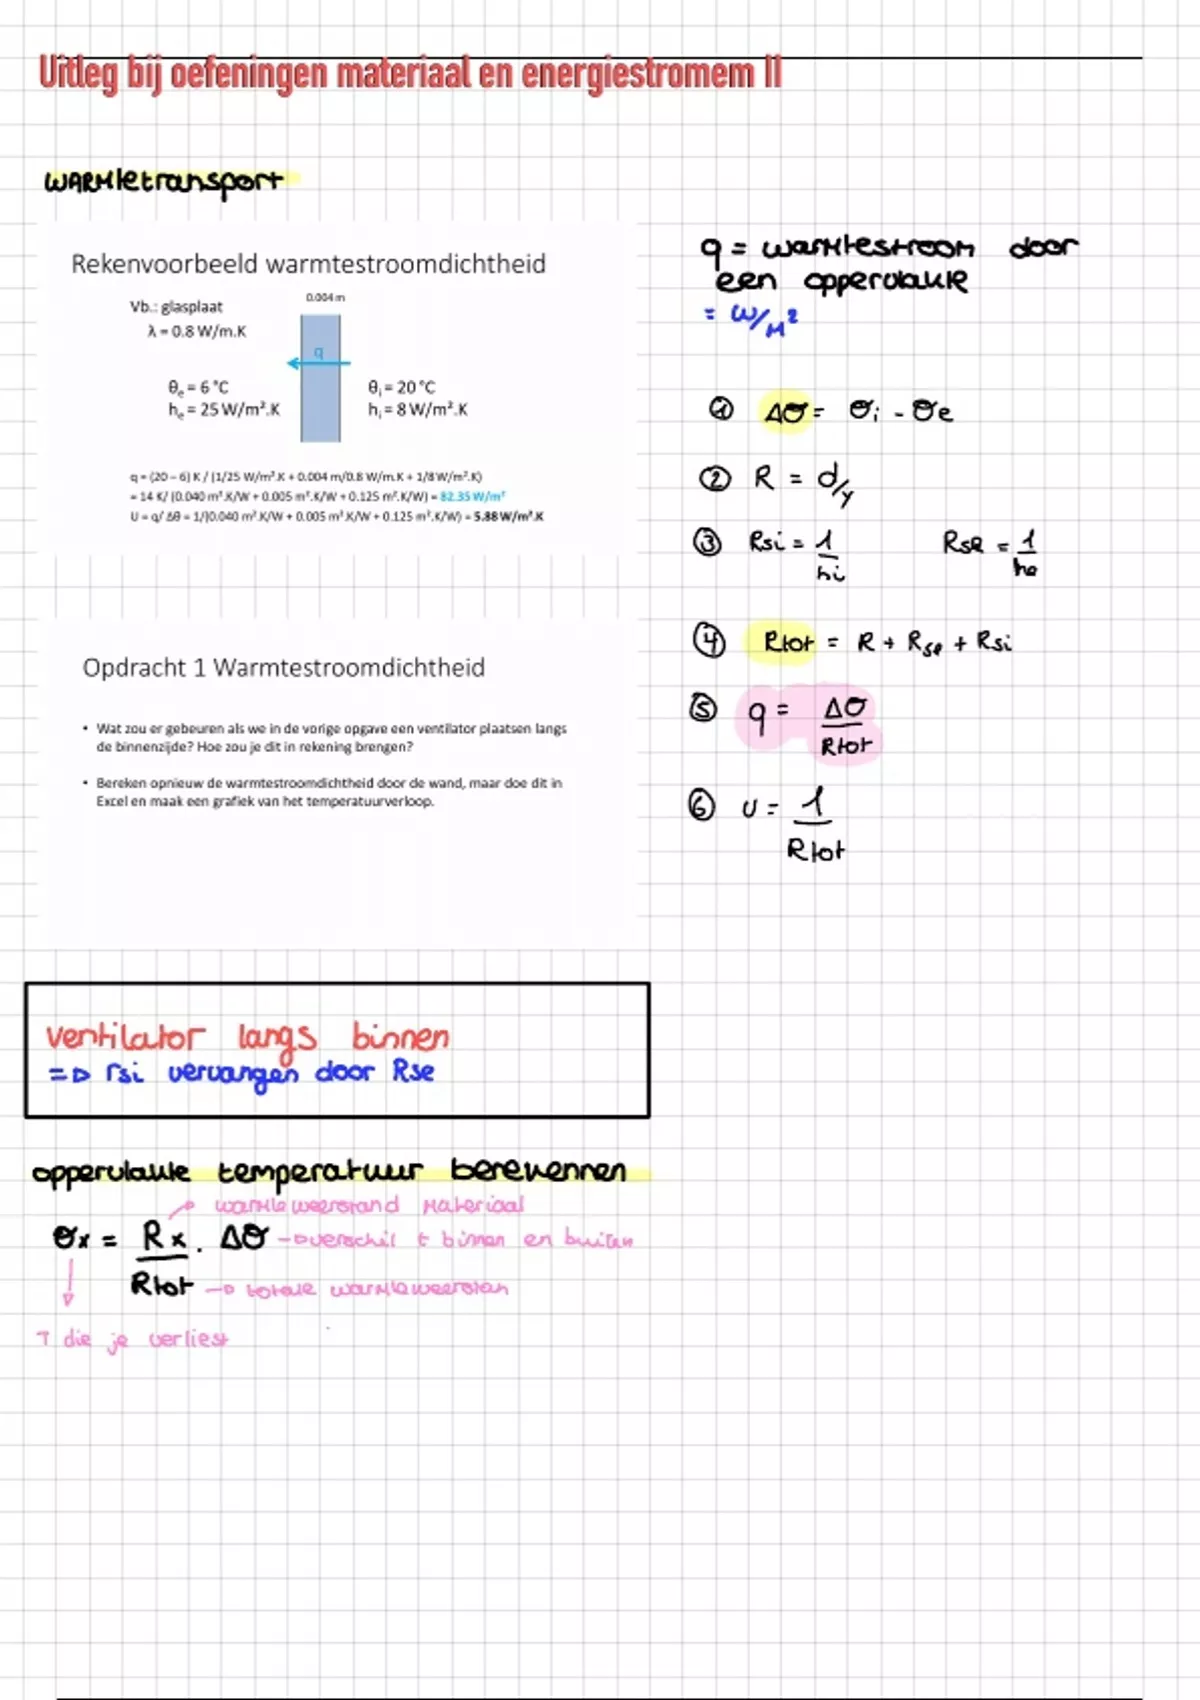 Uitleg bij oefeningen materiaal en energiestromem II
WARMtetransport
Rekenvoorbeeld warmtestroomdichtheid
Vb.: glasplaat
λ = 0.8 W/m.K
0.004 m
q
θe = 6 °C
he = 25 W/m².K
θi = 20 °C
hi = 8 W/m².K
q = (20 – 6) K / (1/25 W/m².K + 0.004 m/0.8 W/m.K + 1/8 W/m².K)
= 14 K/ (0.040 m².K/W + 0.005 m².K/W + 0.125 m².K/W) = 82.35 W/m²
U = q/ Δθ = 1/(0.040 m².K/W + 0.005 m².K/W + 0.125 m².K/W) = 5.88 W/m².K
q = warmtestroom door
een oppervlakte
= W/m²
① Δθ = θi - θe
② R = d/y
③ Rsi = 1/hi Rse = 1/he
④ Rtot = R + Rse + Rsi
⑤ q = Δθ/Rtot
⑥ U = 1/Rtot
Opdracht 1 Warmtestroomdichtheid
• Wat zou er gebeuren als we in de vorige opgave een ventilator plaatsen langs
de binnenzijde? Hoe zou je dit in rekening brengen?
• Bereken opnieuw de warmtestroomdichtheid door de wand, maar doe dit in
Excel en maak een grafiek van het temperatuurverloop.
ventilator langs binnen
=> rsi vervangen door Rse
oppervlakte temperatuur berekennen
warmteweerstand materiaal
θx = Rx/Rtot . Δθ → verschil t binnen en buiten
→ totale warmteweerstan
T die je verliest